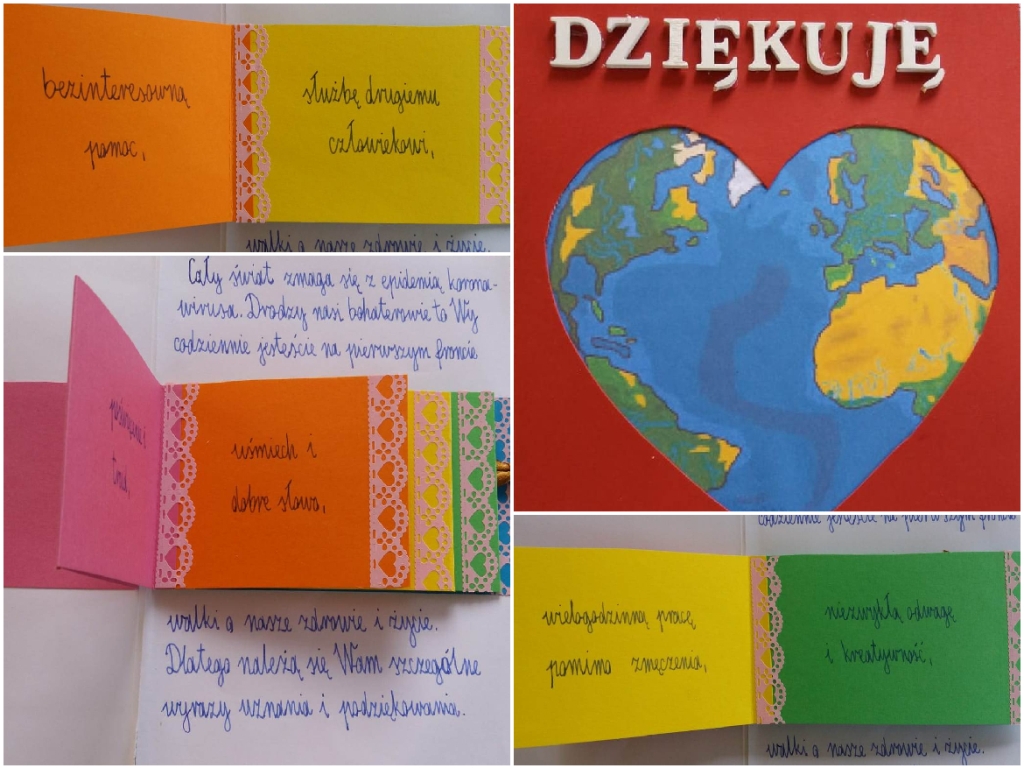 bezinteresowną
pomoc,
służbę drugiemu
człowiekowi,
walki o nasze zdrowie i życie.
DZIĘKUJĘ
Cały świat zmaga się z epidemią korona-
wirusa. Drodzy nasi bohaterowie to Wy
codziennie jesteście na pierwszym froncie
poświęcenie i
trud,
uśmiech i
dobre słowo,
walki o nasze zdrowie i życie.
Dlatego należą się Wam szczególne
wyrazy uznania i podziękowania.
codziennie jesteście na pierwszym froncie
wielogodzinną pracę
pomimo zmęczenia,
niezwykłą odwagę
i kreatywność,
walki o nasze zdrowie i życie.